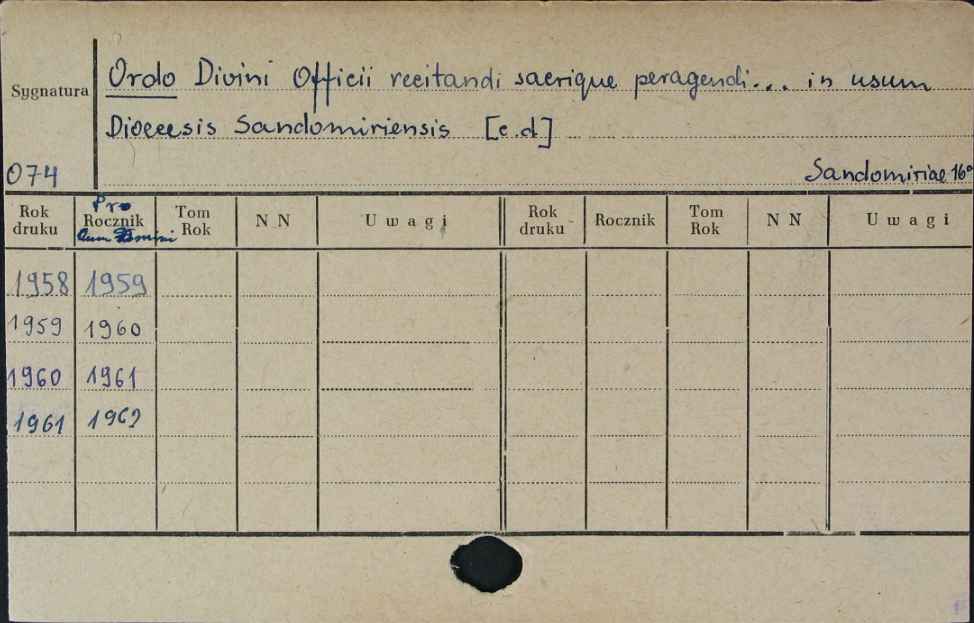 Ordo Divini Officii recitandi sacrique peragendi... in usum
Sygnatura
Dioecesis Sandomiriensis [c.d]
074
Sandomiriae 16°
Pro
Rok druku Rocznik Tom Rok N N Uwagi Rok druku Rocznik Tom Rok N N Uwagi
1958 1959
1959 1960
1960 1961
1961 1962